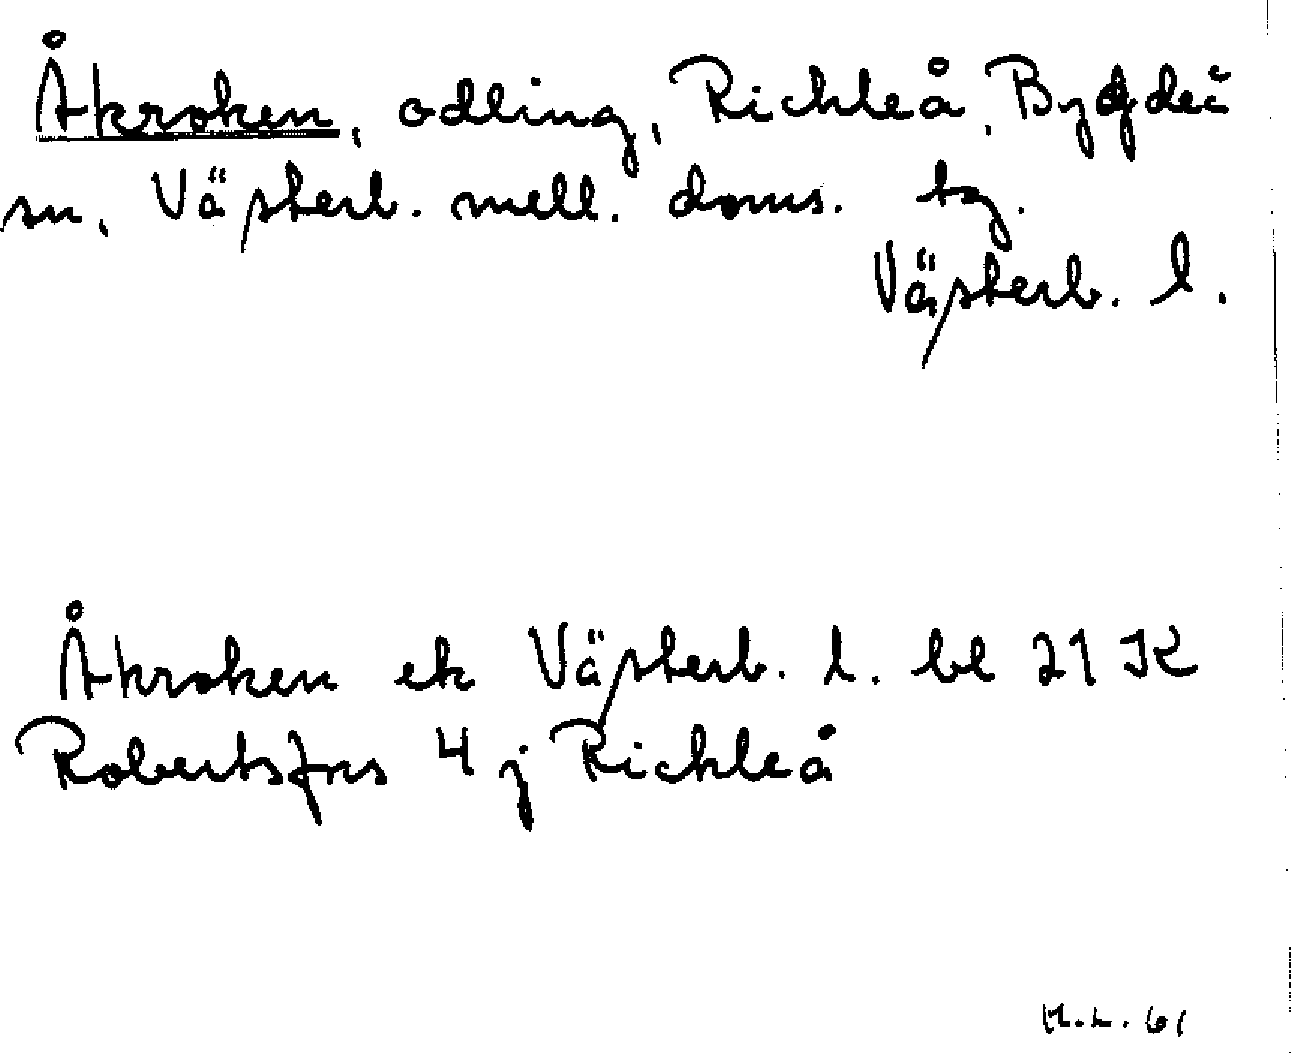 Åkroken, odling, Rickleå, Bygdeå
sn, Västerb. mell. doms. tg.
Västerb. l.
Åkroken ek Västerb. l. bl 21 K
Robertsfors 4 j Rickleå
H.L. 61